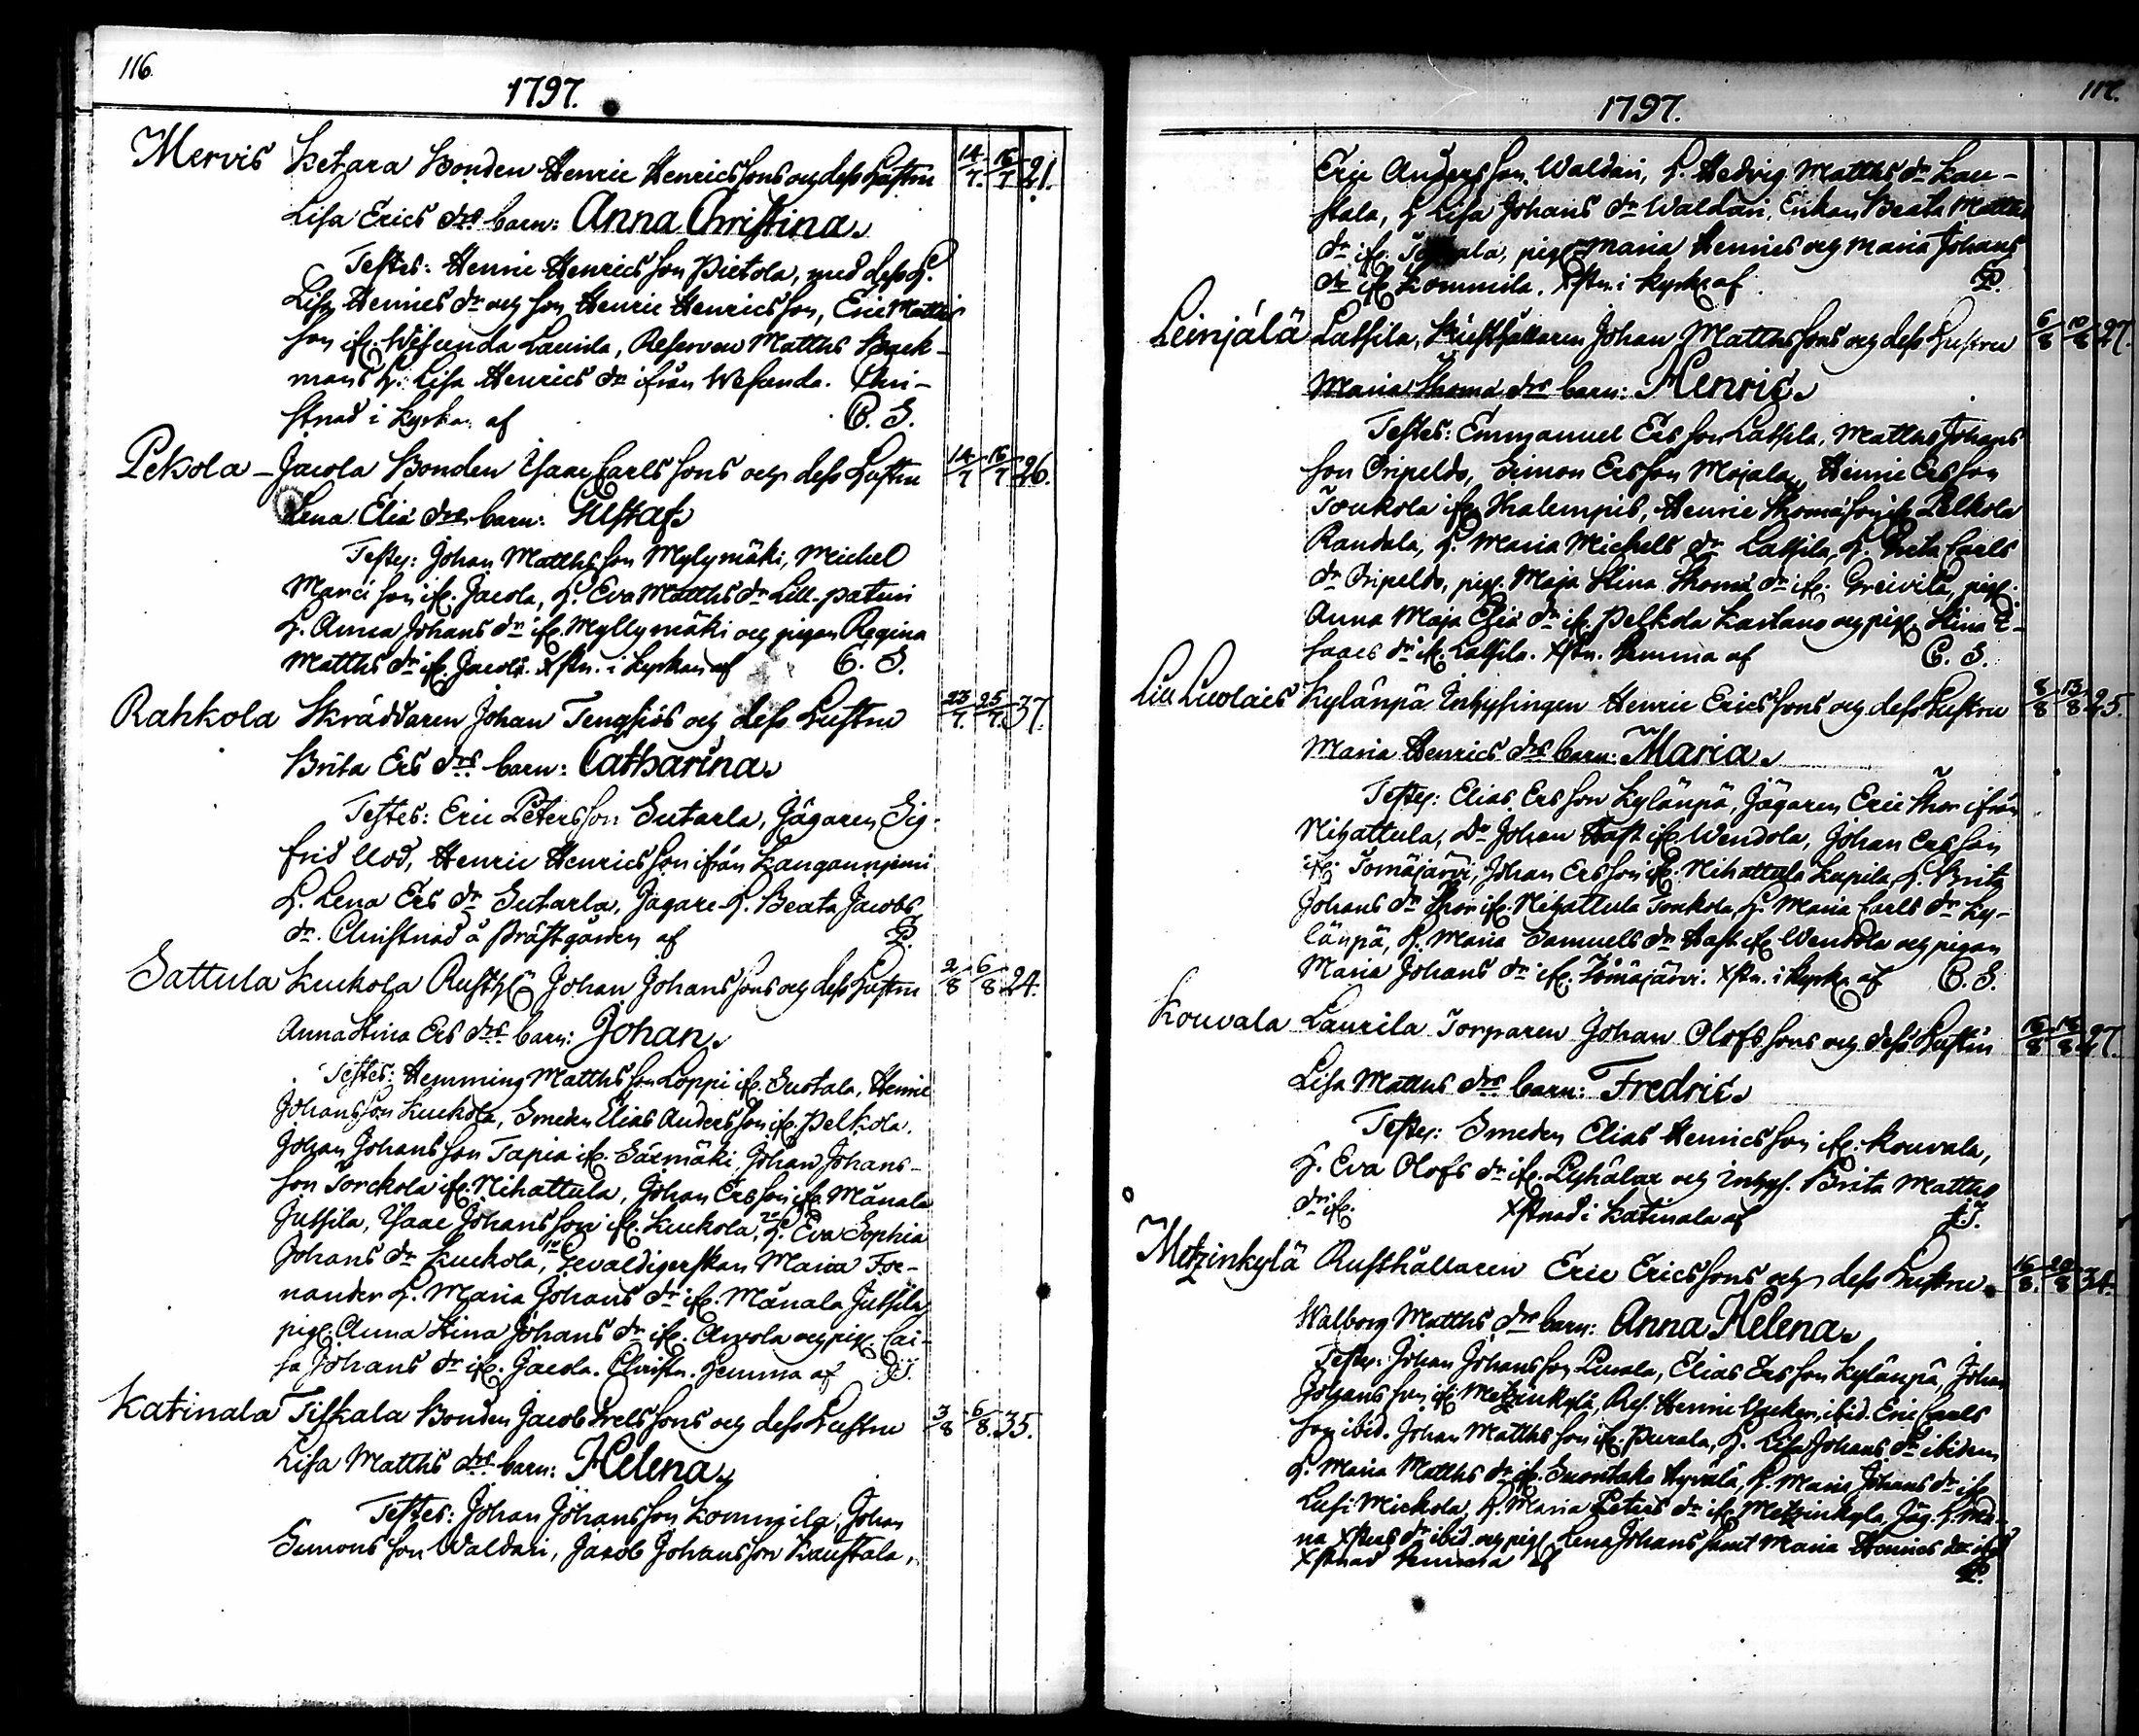 116.
1797.
Mervis Ketara Bonden Henric Henricssons och dess Hustru 14/7. 16/7 21.
Lisa Erics drs barn: Anna Christina.
Testes: Henric Henricsson Pietola, med dess H.
Lisa Henrics dr och son Henric Henricsson, Eric Matths
son ifr. Wesunda Laurila, Reserven Matths Back-
mans H: Lisa Henrics dr ifrån Wesunda. Chri-
stnad i Kyrkan af C. G.
Pekola - Jacola Bonden Isaac Carlssons och dess Hustru 14/7 16/7 26.
Lena Eliæ drs barn: Gustaf.
Testes: Johan Matthsson Mylymäki, Michel
Marci son ifr. Jacola, H. Eva Matths dr Lill-paturi
H. Anna Johans dr ifr. Myllymäki och pigan Regina
Matths dr ifr. Jacola. Xstn. i Kyrkan af C. G.
Rahkola Skräddaren Johan Tengsiös och dess Hustru 23/7. 25/7. 37.
Brita Ers drs barn: Catharina.
Testes: Eric Petersson Sutarla, Jägaren Sig-
frid Mod, Henric Henricsson ifrån Kangannjemi
H. Lena Ers dr Sutarla, Jägare H. Beata Jacobs
dr. Christnad å Prästgården af P.
Sattula Kuckola Rusth. Johan Johanssons och dess Hustru 2/8 6/8 24.
Anna Stina Ers drs barn: Johan.
Testes: Hemming Matthsson Loppi ifr. Suotala, Henric
Johansson Kuckola, Smeden Elias Andersson ifr. Pelkola.
Johan Johansson Tapia ifr. Särmäki, Johan Johans-
son Torckola ifr. Nihattula, Johan Ersson ifr. Mänala
Jutsila, Isaac Johansson ifr. Kuckola, H. Eva Sophia
Johans dr Kuckola, Gevaldigerskan Maria For-
nander H. Maria Johans dr ifr. Mänala Jutsila,
pig. Anna Stina Johans dr ifr. Arvola och pig. Cai-
sa Johans dr ifr. Jacola. Christn. hemma af
Katinala Tiskala Bonden Jacob Axelssons och dess Hustru 3/8 6/8. 35.
Lisa Matths drs barn: Helena.
Testes: Johan Johansson Kommila, Johan
Simons son Waldari, Jacob Johansson Kaustala,
117.
1797.
Eric Andersson Waldari, H. Hedvig Matths dr Kau-
stala, H Lisa Johans dr Waldari, Enkan Beata Matths
dr ifr. pig. Maria Henrics och Maria Johans
dr ifr Kommila. Xstn. i Kyrk. af P.
Leinjälä Latsila, Rusthållaren Johan Matthssons och dess Hustru 6/8 10/8 27.
Maria Thomæ drs barn: Henric.
Testes: Emmanuel Ersson Latsila, Matths Johans
son Oripeldo, Simon Ersson Mojala, Henric Ersson
Toukola ifr. Thalempis, Henric Thomæson ifr Pelkola
Randala, H. Maria Michels dr Latsila, H. Greta Carls
dr Oripeldo, pig. Maja Stina Thomæ dr ifr. Greivila, pig.
Anna Maja Eliæ dr ifr. Pelkola Kartano och pig. Stina I-
saacs dr ifr. Latsila. Xstn. hemma af C. G.
Lill Luolais Kylänpä Inhysingen Henric Ericssons och dess Hustru 8/8 13/8 25.
Maria Henrics drs barn: Maria.
Testes: Elias Ersson Kylänpä, Jägaren Eric Thor ifrån
Nihattula, Dr Johan Hast ifr. Wendola, Johan Ersson
ifr. Tomäjärvi, Johan Ersson ifr. Nihattula Kupila, H. Brita
Johans dr Thor ifr. Nihattula Toukola, H. Maria Carls dr Ky-
länpä, H. Maria Samuels dr Hast ifr. Wendola och pigan
Maria Johans dr ifr. Tömäjärvi. Xstn. i Kyrka af C. G.
Kouvala Laurila Torparen Johan Olofssons och dess Hustru 27.
Lisa Matths drs barn: Fredric.
Testes: Smeden Elias Henricsson ifr. Kouvala,
H. Eva Olofs dr ifr. Pyhälax och inhys. Brita Matths
dr ifr. Xstnad i Katinala af
Metzinkylä Rusthållaren Eric Ericssons och dess Hustru 16/8. 20/8 34.
Walborg Matths drs barn: Anna Helena.
Testes: Johan Johansson Puvala, Elias Ersson Kylänpä, Johan
Johansson ifr. Metzinkylä, Res. Henric ibid. Eric Carls
son ibid. Johan Matthsson ifr. Purala, H. Lisa Johans dr ibidem
H. Maria Matths dr ifr. Suontaka H. Maria Johans dr ifr
Lusi Mickola, H. Maria Peters dr ifr. Metzinkyla, Jäg. H. Ma-
ria Xsters dr ibid. och pig. Lena Johans samt Maria Henrics dr
Xstnad hemma af P.